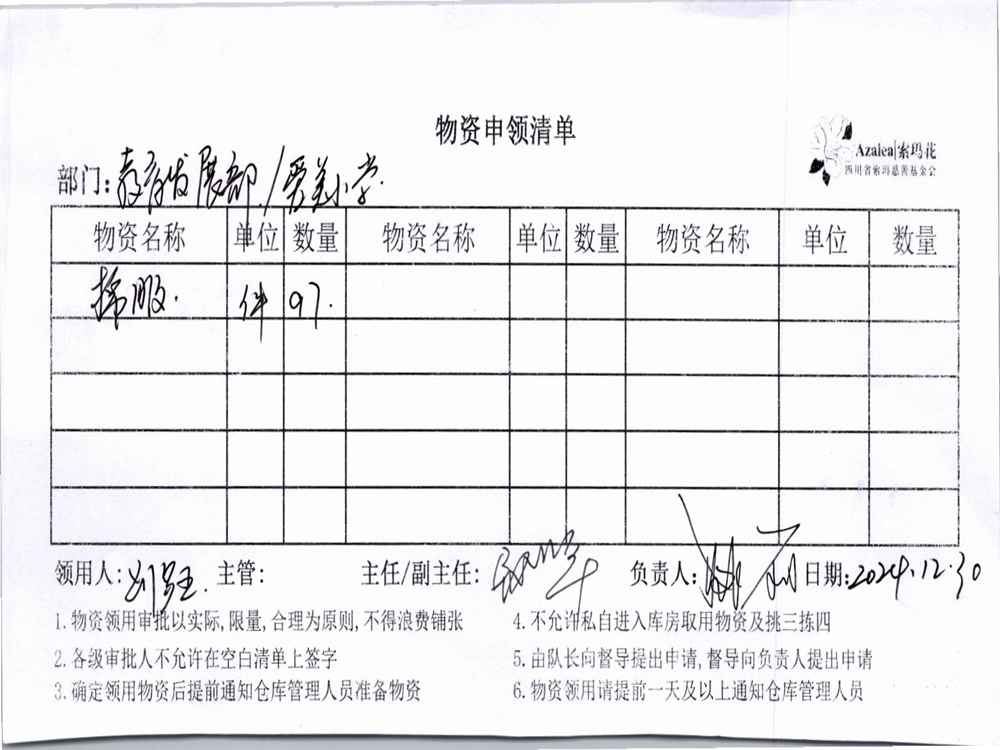 物资申领清单
Azalea|索玛花
四川省索玛慈善基金会
部门:教育发展部/爱美小学.
物资名称 单位 数量 物资名称 单位 数量 物资名称 单位 数量
棉服. 件 97.
领用人: 主管: 主任/副主任: 负责人: 日期:2024.12.30
1.物资领用审批以实际,限量,合理为原则,不得浪费铺张
2.各级审批人不允许在空白清单上签字
3.确定领用物资后提前通知仓库管理人员准备物资
4.不允许私自进入库房取用物资及挑三拣四
5.由队长向督导提出申请,督导向负责人提出申请
6.物资领用请提前一天及以上通知仓库管理人员